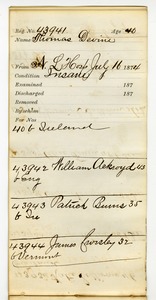 Reg. No. 43941 Age 40
Name Thomas Devine
From N. L. Hos. July 16 1874
Condition Insane
Examined 187
Discharged 187
Removed
By whom
For Nos
40 b Ireland
43942 William Ackroyd 43
b Eng
43943 Patrick Burns 35
b Ire
43944 James Crosley 32
b Vermont